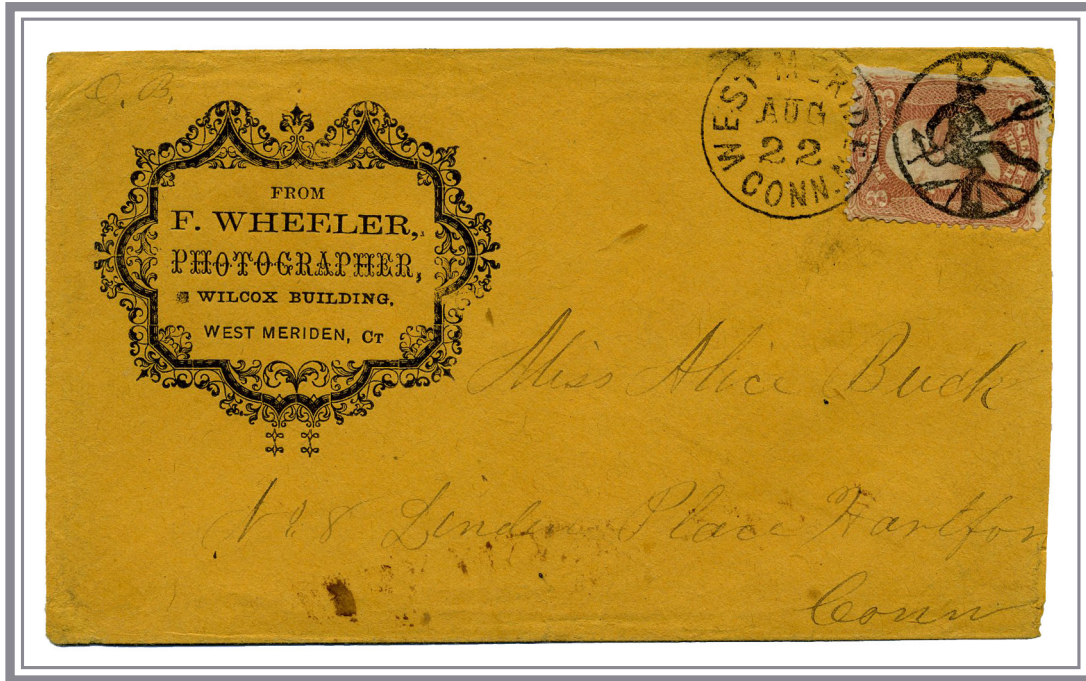 C. B.
FROM
F. WHEELER,
PHOTOGRAPHER,
WILCOX BUILDING,
WEST MERIDEN, CT
WEST MERID
AUG
22
CONN.
3
Miss Alice Buck
No 8 Linden Place Hartfor
Conn